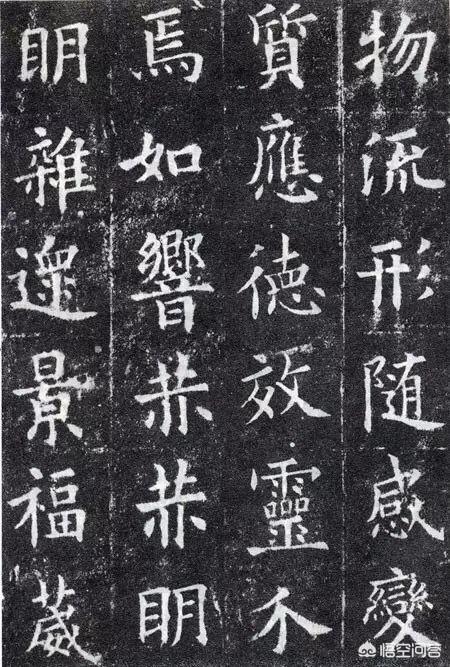 物流形随感變
質應德效靈不
焉如響赫赫明
明雜遝景福葳
悟空问答